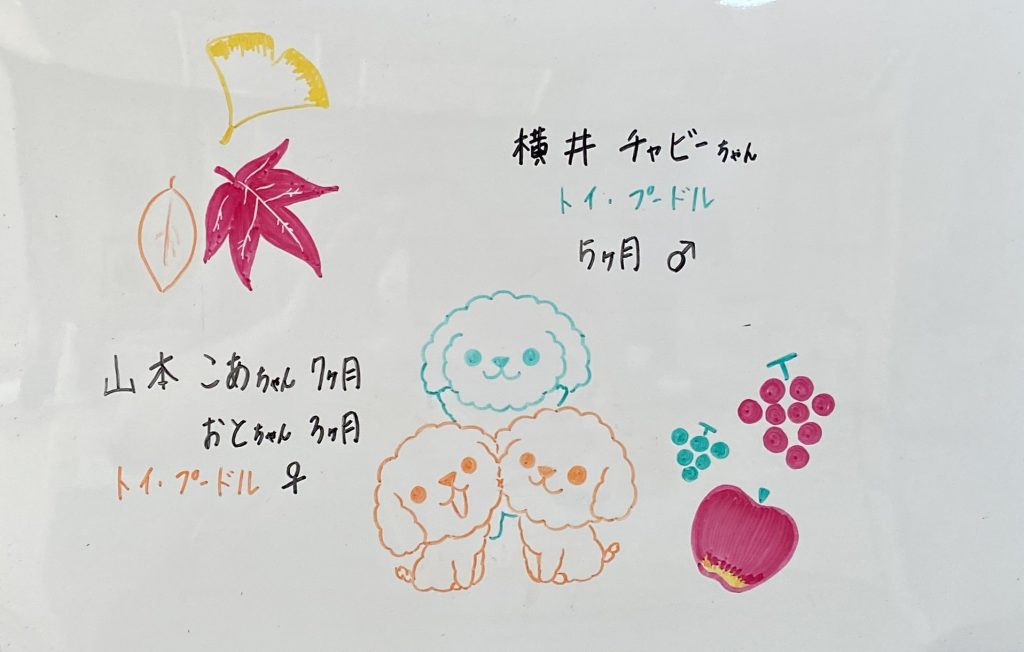 横井 チャビーちゃん
トイ・プードル
5ヶ月 ♂
山本 こあちゃん 7ヶ月
おとちゃん 3ヶ月
トイ・プードル ♀